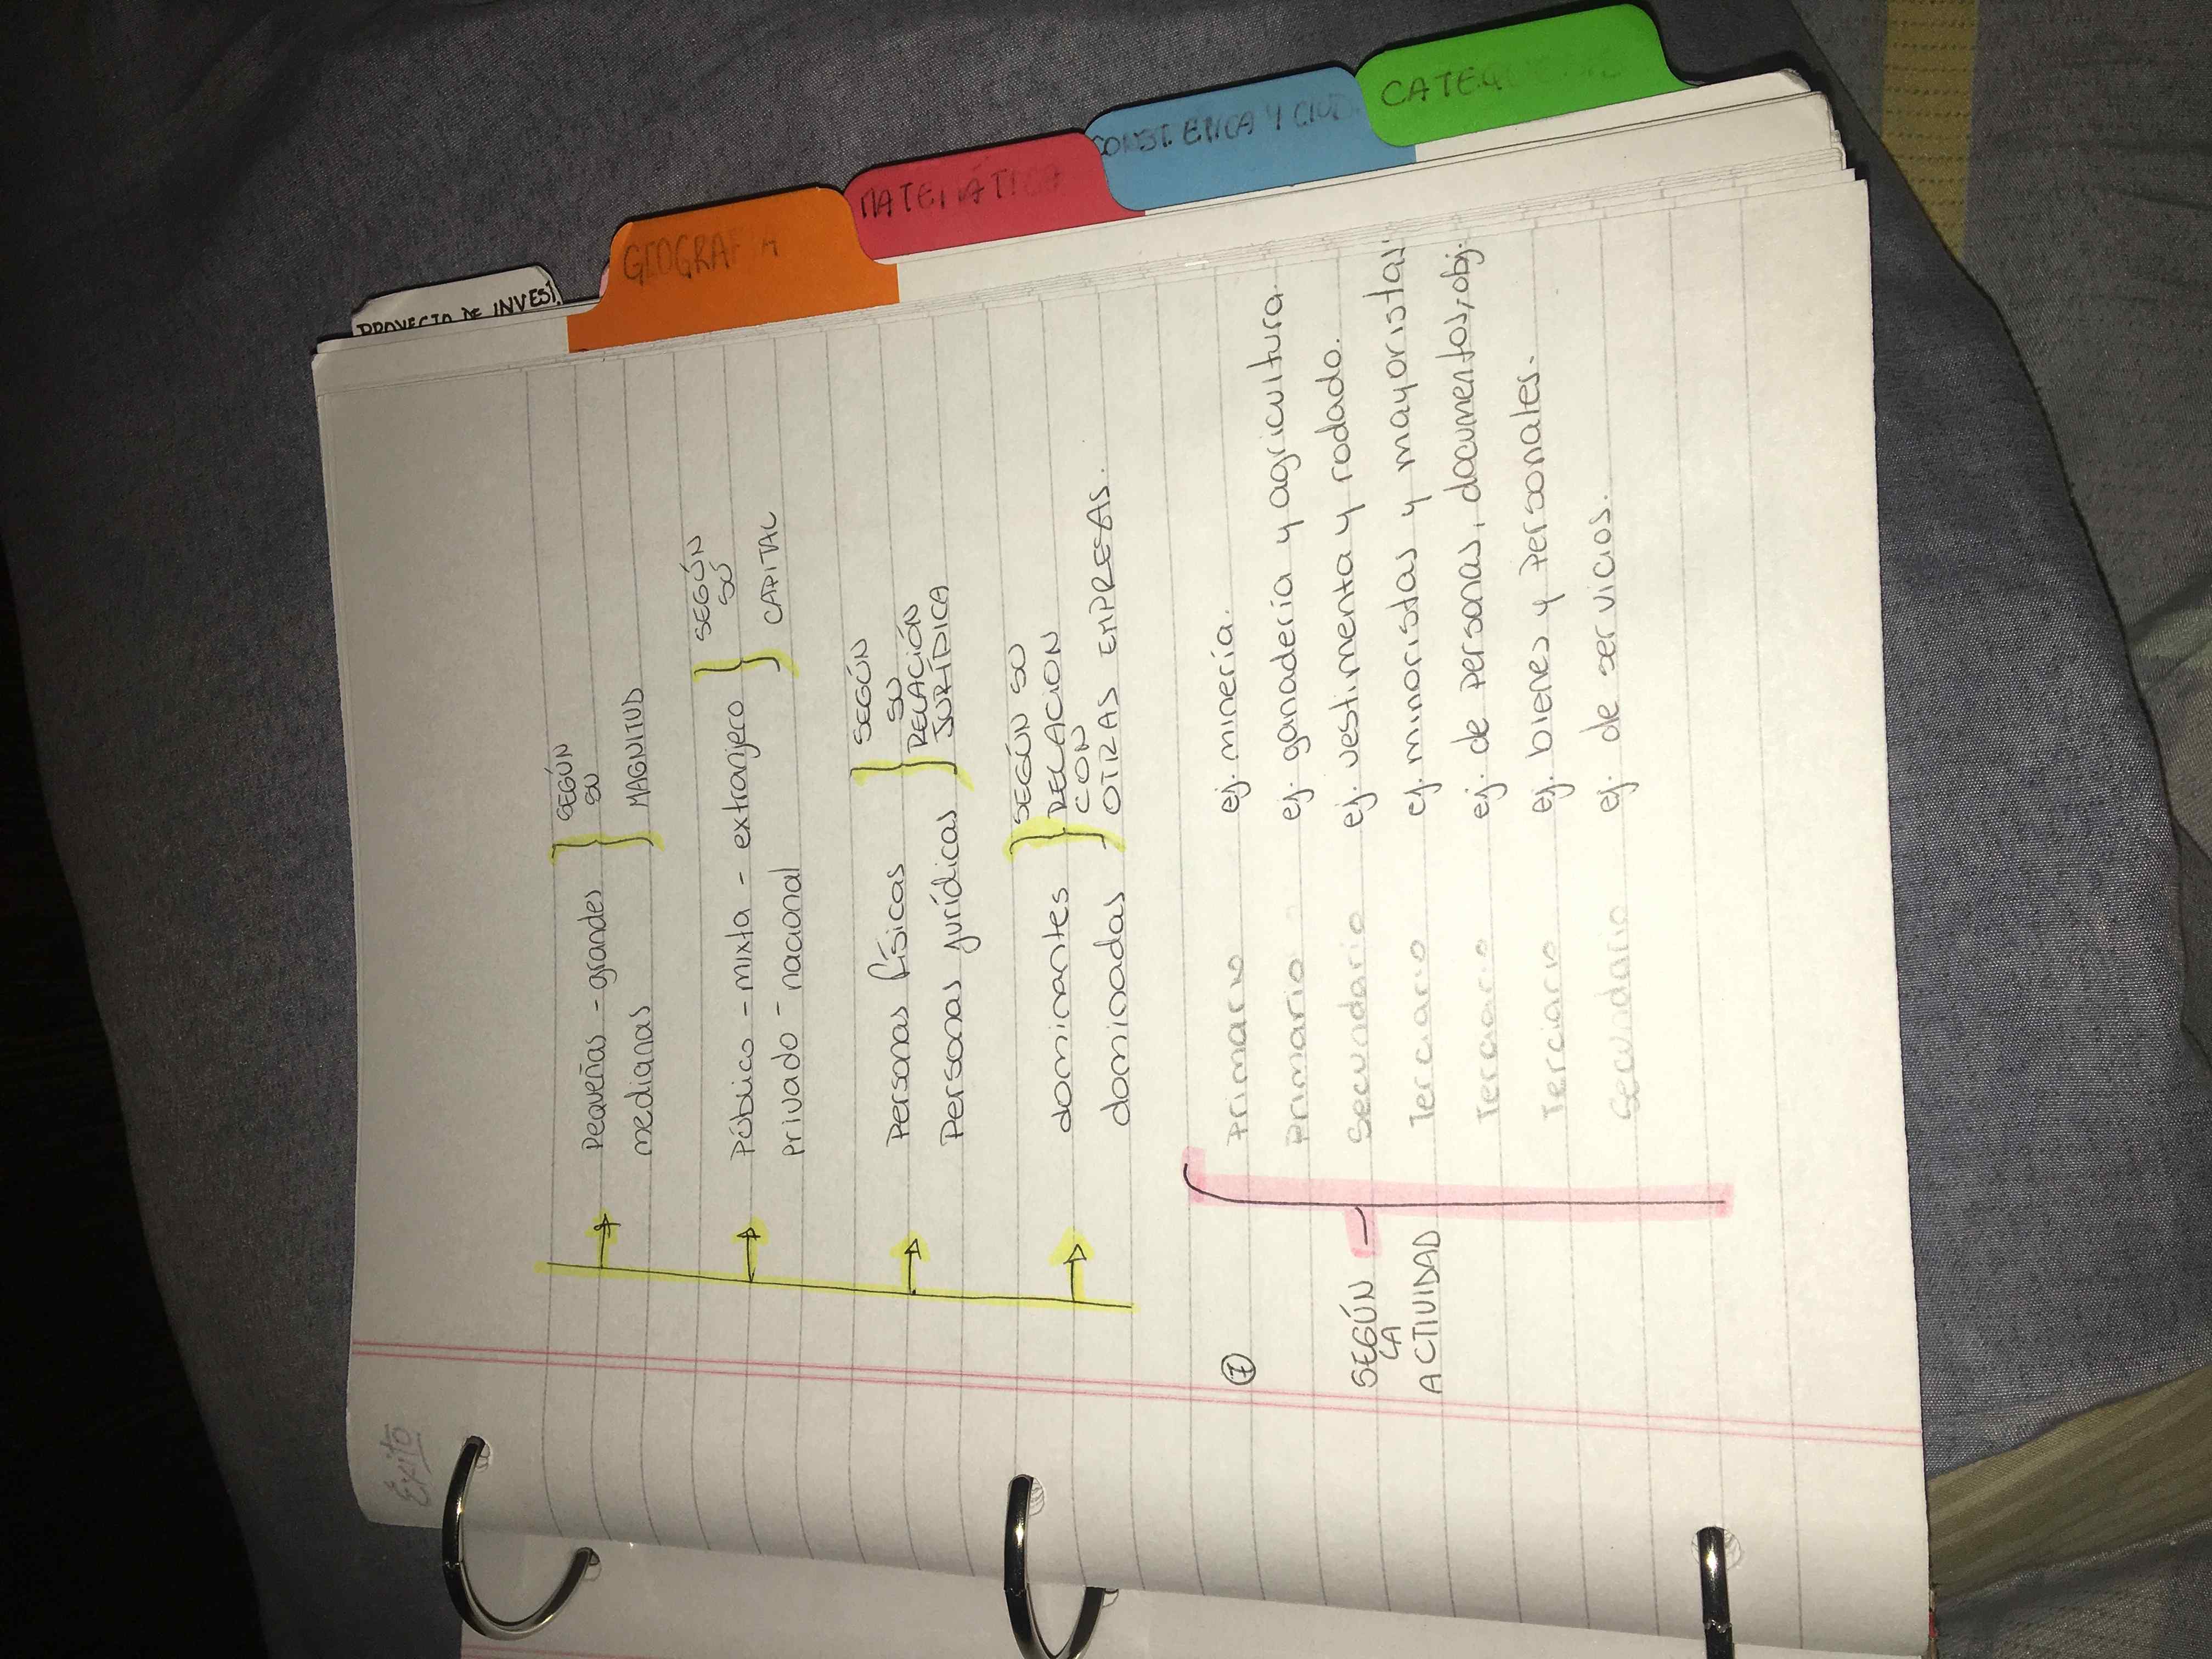 Éxito
Pequeñas - grandes } SEGÚN SU MAGNITUD
medianas
Público - mixta - extranjero } SEGÚN SÚ CAPITAL
privado - nacional
Personas físicas } SEGÚN SU RELACIÓN JURÍDICA
Personas jurídicas
dominantes } SEGÚN SU RELACION CON OTRAS EMPRESAS.
dominadas
⑦
SEGÚN LA ACTIVIDAD
Primario ej. minería.
Primario ej. ganadería y agricultura.
Secundario ej. vestimenta y rodado.
Terciario ej. minoristas y mayoristas.
Terciario ej. de personas, documentos, obj.
Terciario ej. bienes y personales.
Secundario ej. de servicios.
PROYECTO DE INVEST.
GEOGRAFIA
MATEMÁTICA
CONST. ETICA Y CIUD.